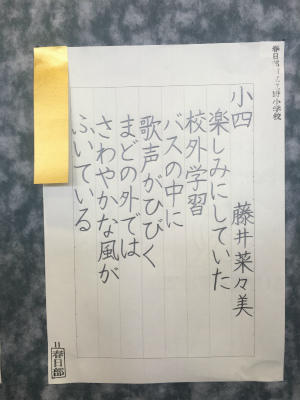 小四　藤井菜々美
楽しみにしていた
校外学習
バスの中に
歌声がひびく
まどの外では
さわやかな風が
ふいている
11 春日部